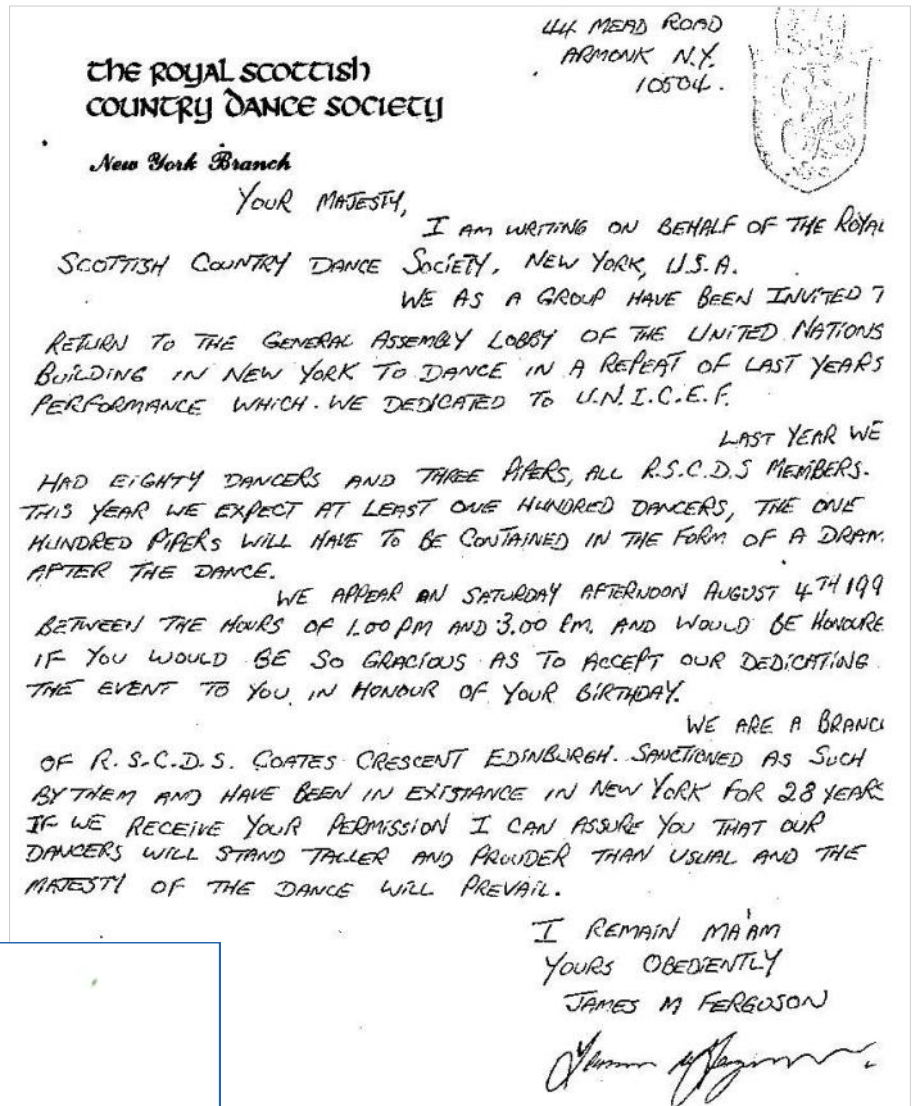 44 MEAD ROAD
ARMONK N.Y.
10504.
the ROYAL SCOTTISH
COUNTRY DANCE SOCIETY
New York Branch
YOUR MAJESTY,
I AM WRITING ON BEHALF OF THE ROYAL
SCOTTISH COUNTRY DANCE SOCIETY, NEW YORK, U.S.A.
WE AS A GROUP HAVE BEEN INVITED
RETURN TO THE GENERAL ASSEMBLY LOBBY OF THE UNITED NATIONS
BUILDING IN NEW YORK TO DANCE IN A REPEAT OF LAST YEARS
PERFORMANCE WHICH WE DEDICATED TO U.N.I.C.E.F.
LAST YEAR WE
HAD EIGHTY DANCERS AND THREE PIPERS, ALL R.S.C.D.S MEMBERS.
THIS YEAR WE EXPECT AT LEAST ONE HUNDRED DANCERS, THE ONE
HUNDRED PIPERS WILL HAVE TO BE CONTAINED IN THE FORM OF A DRAM
AFTER THE DANCE.
WE APPEAR ON SATURDAY AFTERNOON AUGUST 4TH 199
BETWEEN THE HOURS OF 1.00 PM AND 3.00 PM. AND WOULD BE HONOURE
IF YOU WOULD BE SO GRACIOUS AS TO ACCEPT OUR DEDICATING
THE EVENT TO YOU IN HONOUR OF YOUR BIRTHDAY.
WE ARE A BRANC
OF R.S.C.D.S. COATES CRESCENT EDINBURGH. SANCTIONED AS SUCH
BY THEM AND HAVE BEEN IN EXISTANCE IN NEW YORK FOR 28 YEARS
IF WE RECEIVE YOUR PERMISSION I CAN ASSURE YOU THAT OUR
DANCERS WILL STAND TALLER AND PROUDER THAN USUAL AND THE
MAJESTY OF THE DANCE WILL PREVAIL.
I REMAIN MA'AM
YOURS OBEDIENTLY
JAMES M FERGUSON